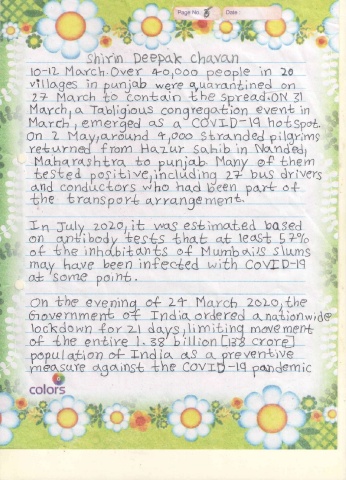 Page No. 5 Date
Shirin Deepak Chavan
10-12 March. Over 40,000 people in 20
villages in punjab were quarantined on
27 March to contain the spread. ON 31
March, a Tabligious congregation event in
March, emerged as a COVID-19 hotspot.
On 2 May, around 4,000 stranded pilgrims
returned from Hazur Sahib in Nanded,
Maharashtra to punjab Many of them
tested positive, including 27 bus drivers
and conductors who had been part of
the transport arrangement.
In July 2020, it was estimated based
on antibody tests that at least 57%
of the inhabitants of Mumbai's slums
may have been infected with COVID-19
at some point.
On the evening of 24 March 2020, the
Government of India ordered a nationwide
lockdown for 21 days, limiting movement
of the entire 1.38 billion [138 crore]
population of India as a preventive
measure against the COVID-19 pandemic
colors